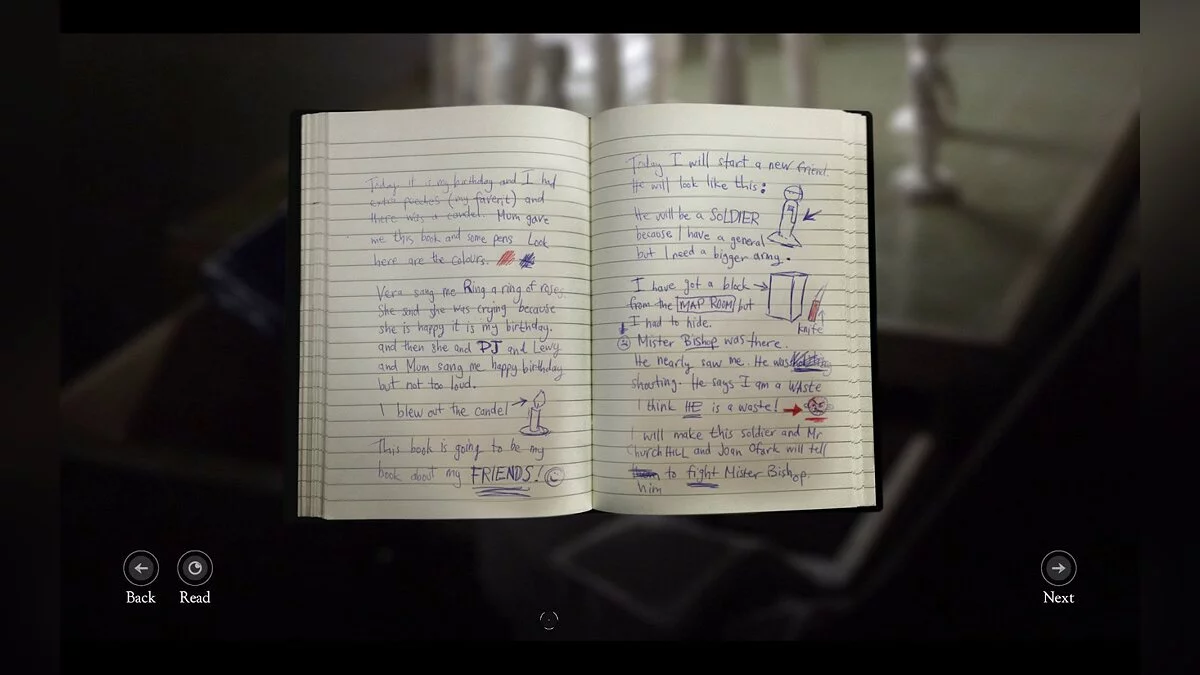 Today it is my birthday and I had
extra peeches (my faverit) and
there was a candel. Mom gave
me this book and some pens Look
here are the colours.
Vera sang me Ring a ring of roses.
She said she was crying because
she is happy it is my birthday.
and then she and PJ and Lewy
and Mum sang me happy birthday
but not too loud.
I blew out the candel
This book is going to be my
book about my FRIENDS!
Today I will start a new friend.
He will look like this:
He will be a SOLDIER
because I have a general
but I need a bigger army.
I have got a block
from the MAP ROOM but
I had to hide.
knife
Mister Bishop was there.
He nearly saw me. He was
shouting. He says I am a WASTE
I think HE is a waste!
I will make this soldier and Mr
Church HILL and Joan Ofark will tell
to fight Mister Bishop.
him
Back
Read
Next